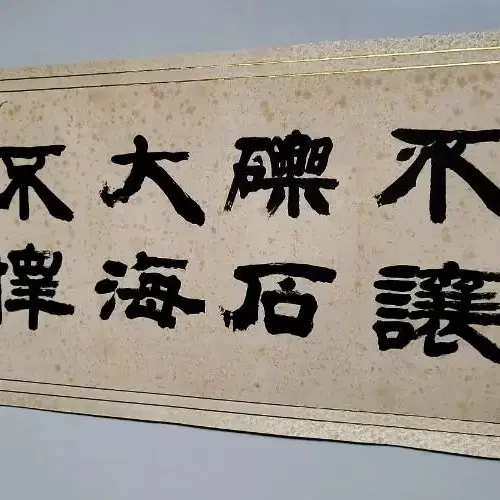 不讓
礫石
大海
不擇